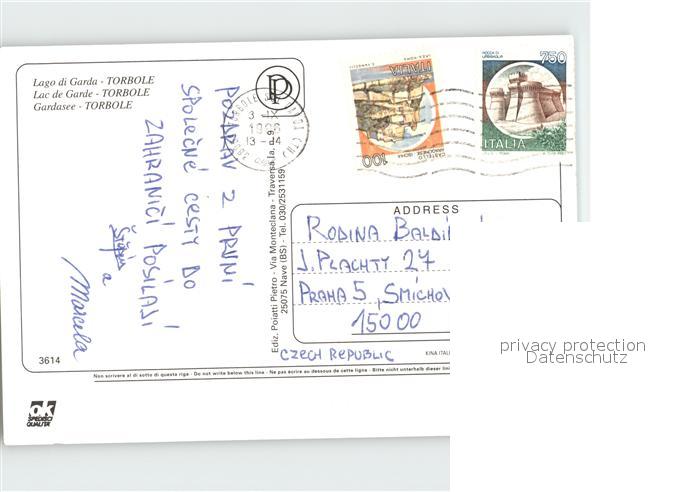 Lago di Garda - TORBOLE
Lac de Garde - TORBOLE
Gardasee - TORBOLE
POZDRAV Z PRVNÍ
SPOLEČNÉ CESTY DO
ZAHRANIČÍ POSÍLAJÍ
a
Marcela
3614
ok
SPEDISCI
QUALITÀ
Ediz. Poiatti Pietro - Via Monteclana - Traversa
25075 Nave (BS) - Tel. 030/2531159
P
3 -IX
13 -14
ITALIA
100
CASTELLO
ARAGONESE ISCHIA
ROCCA DI
URBISAGLIA
750
ITALIA
ADDRESS
RODINA
J. PLACHTY 27
PRAHA 5, SMÍCHOV
15000
CZECH REPUBLIC
KINA ITAL
Non scrivere al di sotto di questa riga - Do not write below this line - Ne pas écrire au dessous de cette ligne - Bitte nicht unterhalb dieser lini
privacy protection
Datenschutz